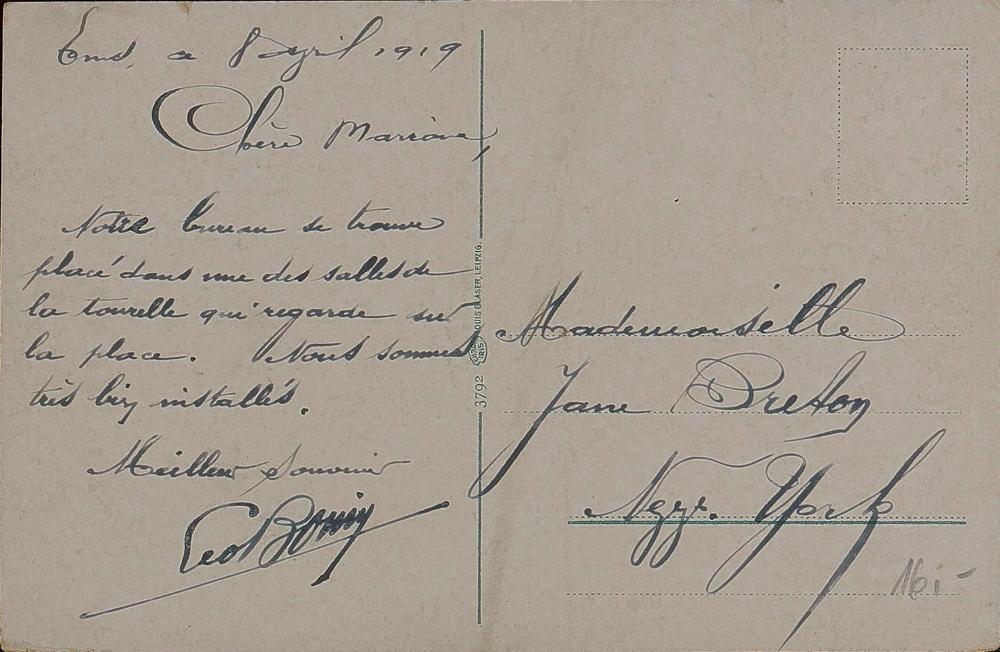 Ems, a 8 April 1919
Chère Marraine,
Notre bureau se trouve
placé dans une des salles de
la tourelle qui regarde sur
la place. Nous sommes
très bien installés.
Meilleur souvenir
Leo Bonin
3792
LOUIS GLASER, LEIPZIG.
Mademoiselle
Jane Breton
New-York